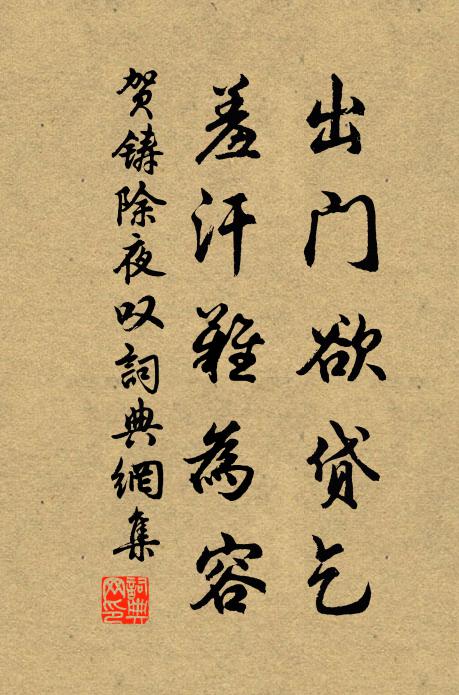 出门欲贷乞
羞汗难為容
贺铸除夜叹詞典網集
詞典网印